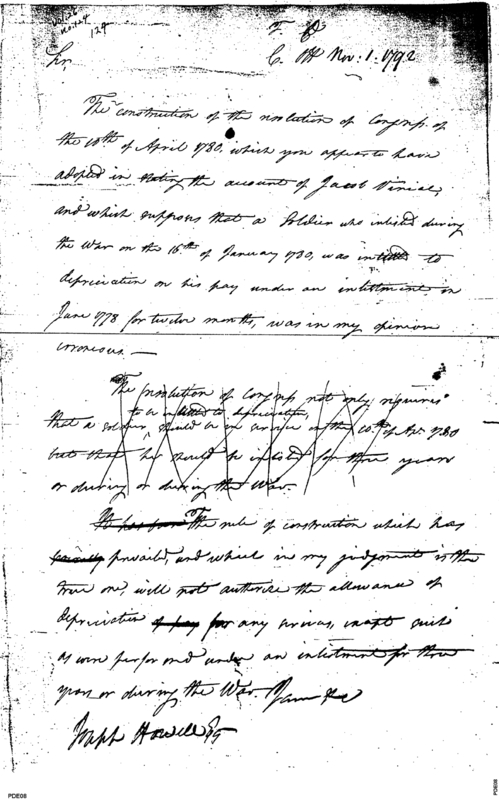 124
T. D
C. Off Nov: 1. 1792
Sir,
The construction of the resolution of Congress of
the 10th of April 1780. which you appear to have
adopted in stating the account of Jacob
and which supposes that a Soldier who inlisted during
the War on the 16th of January 1780, was intitled to
depreciation on his pay under an inlistment in
June 1778 for twelve months, was in my opinion
erroneous. —
The resolution of Congress not only requires
to be intitled to depreciation,
that a soldier, should be in service on the 10th of Apr 1780
but that he should be inlisted for three years
or during or during the War.
It has been The rule of construction which has
prevailed, and which in my judgment is the
true one, will not authorise the allowance of
depreciation of pay for any services, except such
as were performed under an inlistment for three
years or during the War. I am &c
Joseph Howell Esq
PDE08
PDE08